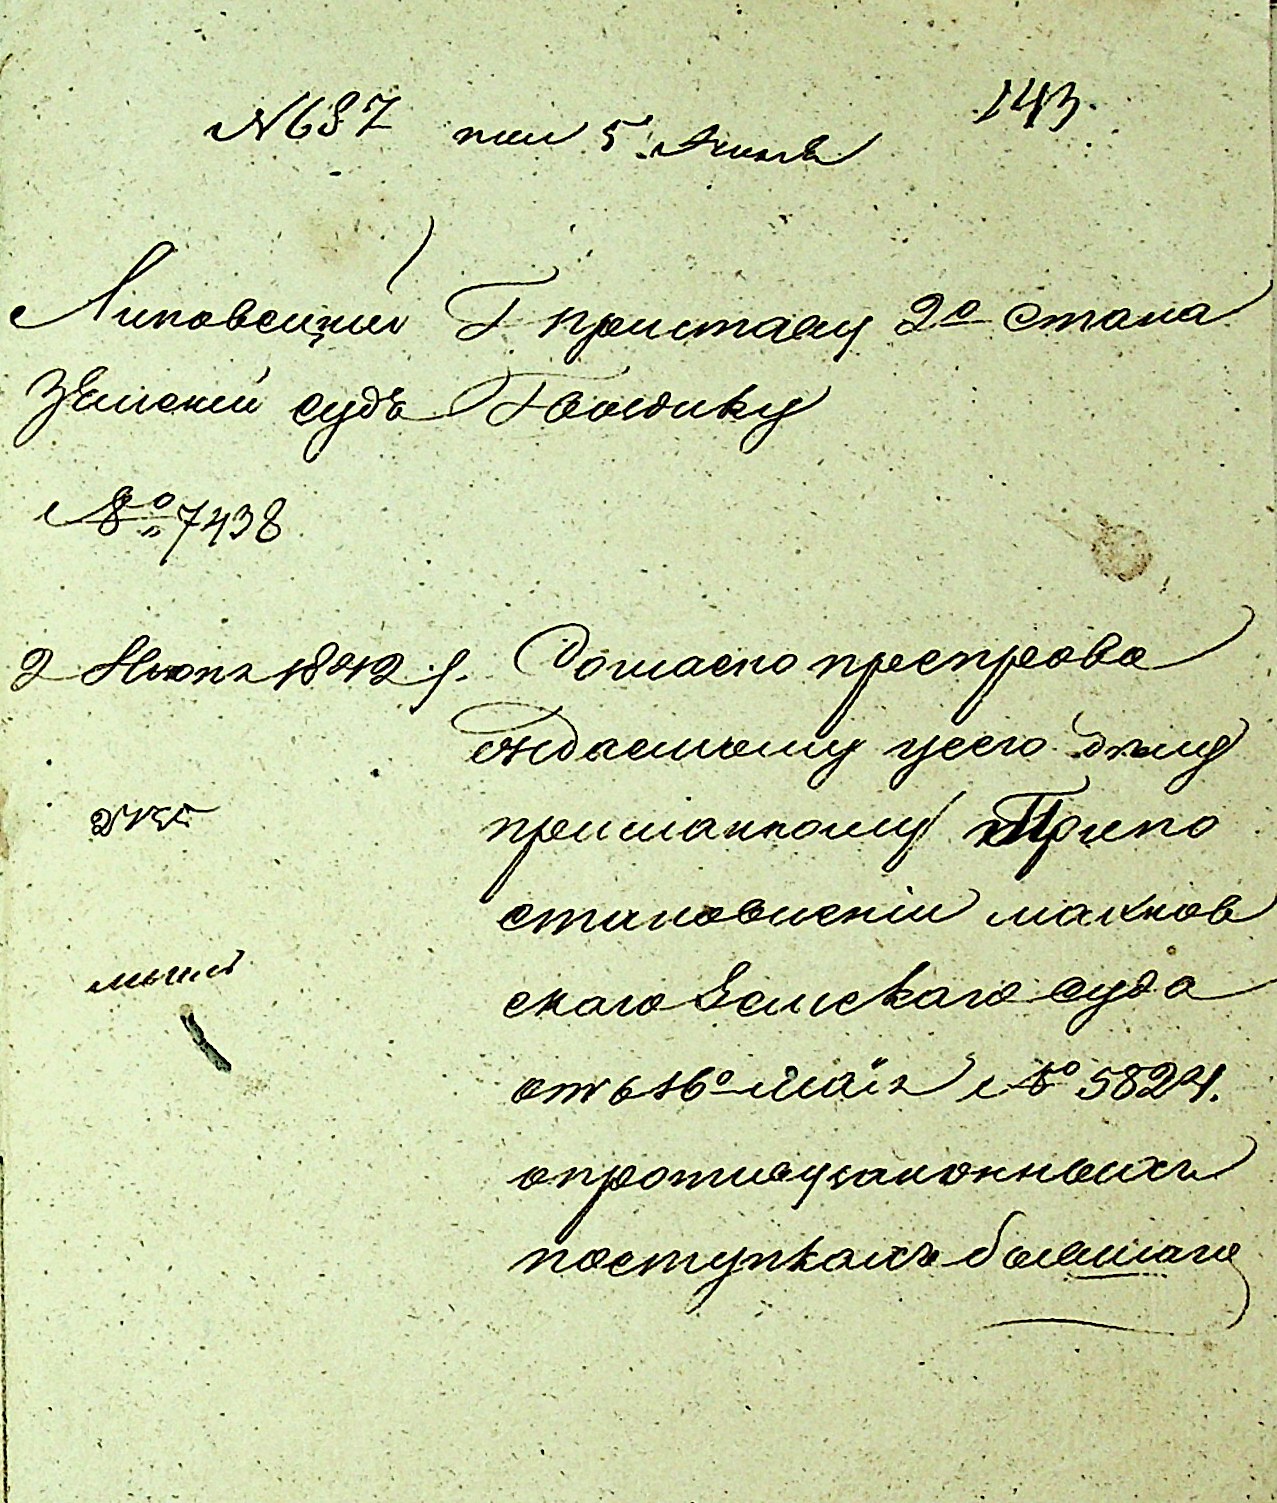 № 687 пол 5 Июня
143.
Липовецкий Г приставу 2о стана
Земский судъ
№ 7438
2 Июня 1842 г. Согласно препрово
ждаемому у сего дѣлу
присланному при по
становленіи махнов
скаго Земскаго суда
отъ 16о Маія № 5824.
о противузаконныхъ
поступкахъ бывшаго